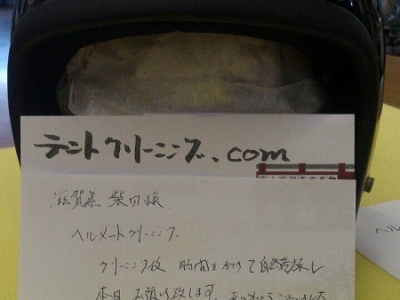 テントクリーニング.com
滋賀県 柴田様
ヘルメットクリーニング
クリーニング後、時間をかけて自然乾燥し
本日お預り致します。
ヘル